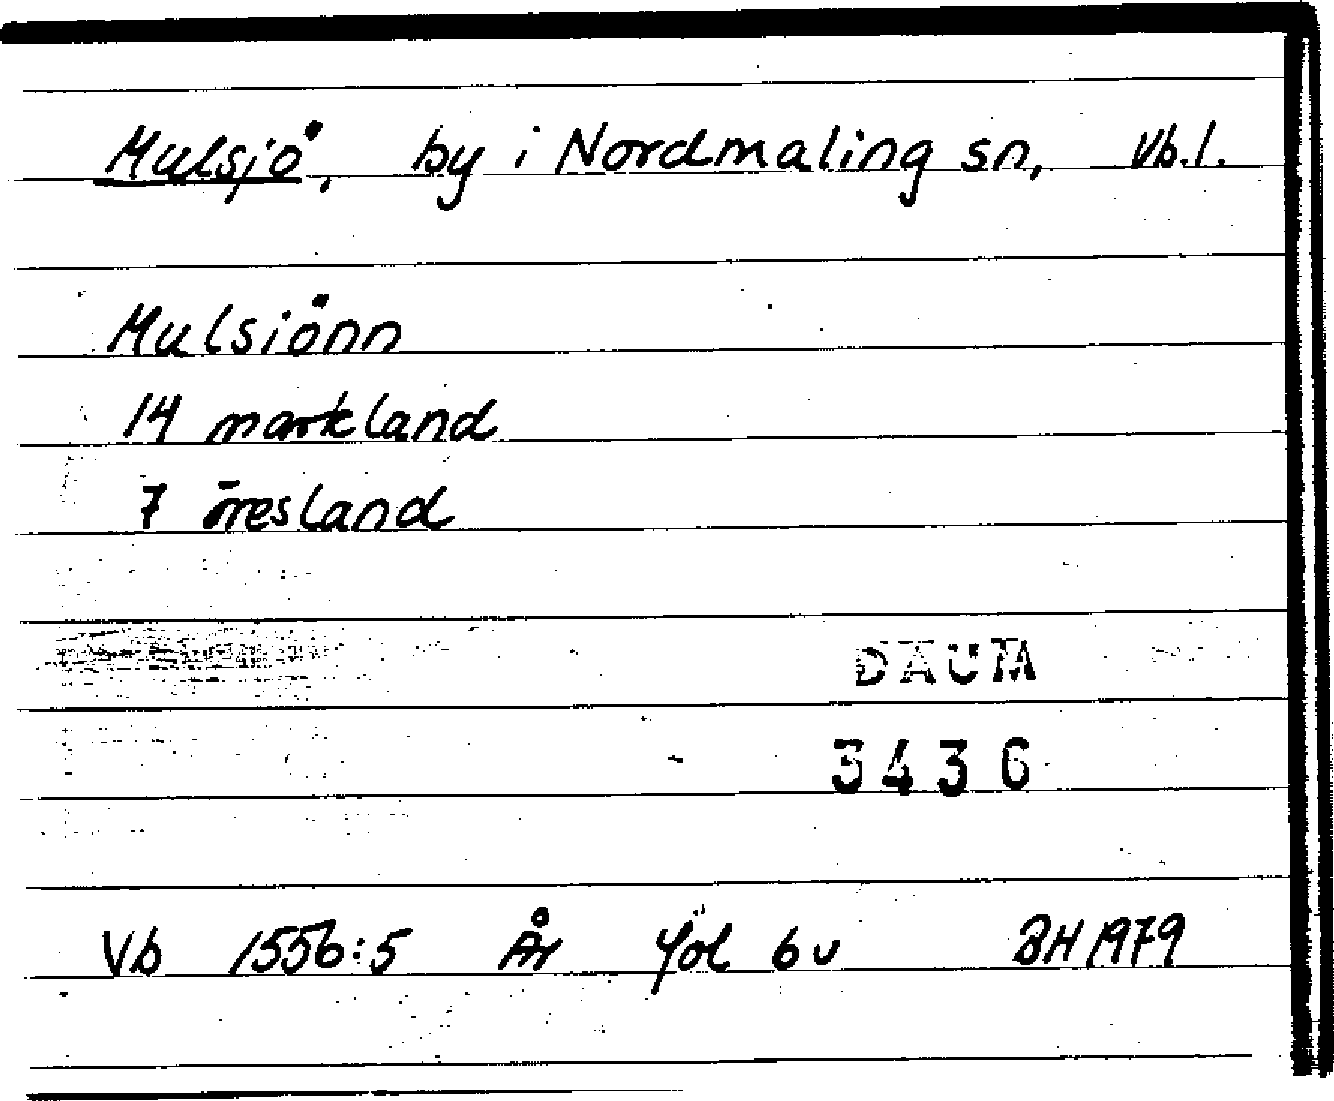 Mulsjö, by i Nordmaling sn, Vb.l.
Mulsiönn
14 markland
7 öresland
DAUM
3436
Vb 1556:5 År föl 6v BH 1979